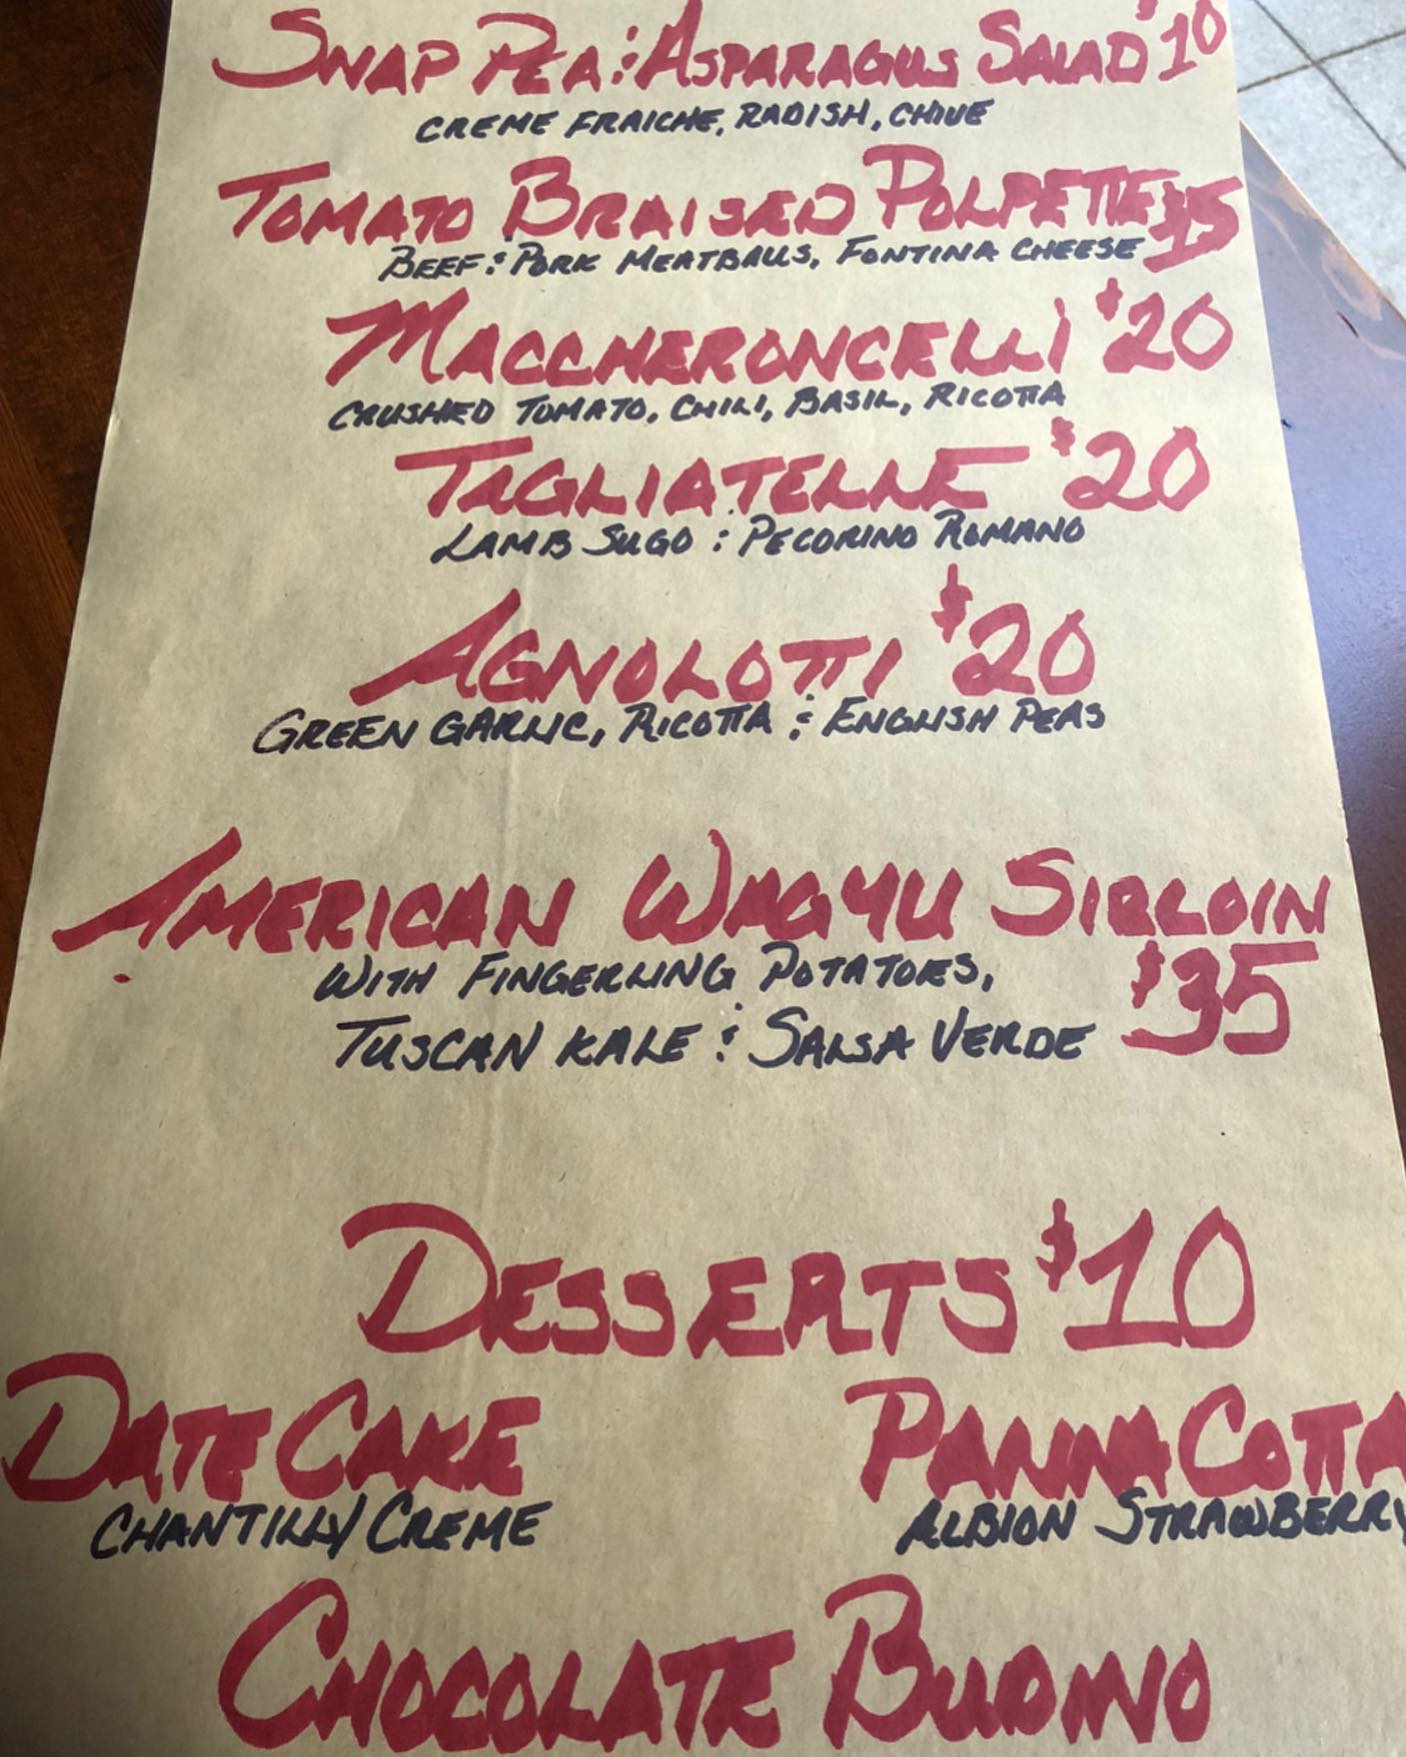 SNAP PEA & ASPARAGUS SALAD $10
CREME FRAICHE, RADISH, CHIVE
TOMATO BRAISED POLPETTE $15
BEEF & PORK MEATBALLS, FONTINA CHEESE
MACCHERONCELLI $20
CRUSHED TOMATO, CHILI, BASIL, RICOTTA
TAGLIATELLE $20
LAMB SUGO & PECORINO ROMANO
AGNOLOTTI $20
GREEN GARLIC, RICOTTA & ENGLISH PEAS
AMERICAN WAGYU SIRLOIN
WITH FINGERLING POTATOES,
TUSCAN KALE & SALSA VERDE $35
DESSERTS $10
DATE CAKE
CHANTILLY CREME
PANNA COTTA
ALBION STRAWBERRY
CHOCOLATE BUDINO